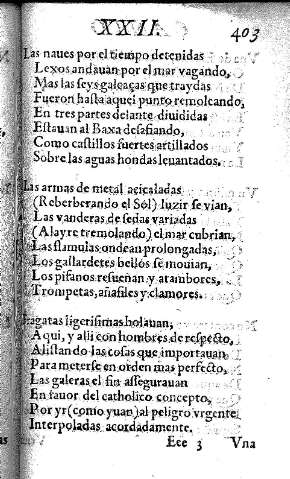 XXII.
403
Las naues por el tiempo detenidas
Lexos andauan por el mar vagando,
Mas las seys galeaças que traydas
Fueron hasta aquel punto remolcando,
En tres partes delante diuididas
Estauan al Baxa desafiando,
Como castillos fuertes artillados
Sobre las aguas hondas leuantados.
Las armas de metal acicaladas
(Reberberando el Sol) luzir se vian,
Las vanderas de sedas variadas
(Al ayre tremolando) el mar cubrian,
Las flamulas ondean prolongadas,
Los gallardetes bellos se mouian,
Los pifanos resueñan y atambores,
Trompetas, añafiles y clamores.
Fragatas ligerisimas bolauan,
Aqui, y alli con hombres de respecto,
Alistando las cosas que importauan
Para meterse en orden mas perfecto,
Las galeras el fin assegurauan
En fauor del catholico concepto,
Por yr (como yuan) al peligro vrgente
Interpoladas acordadamente.
Eee 3 Vna